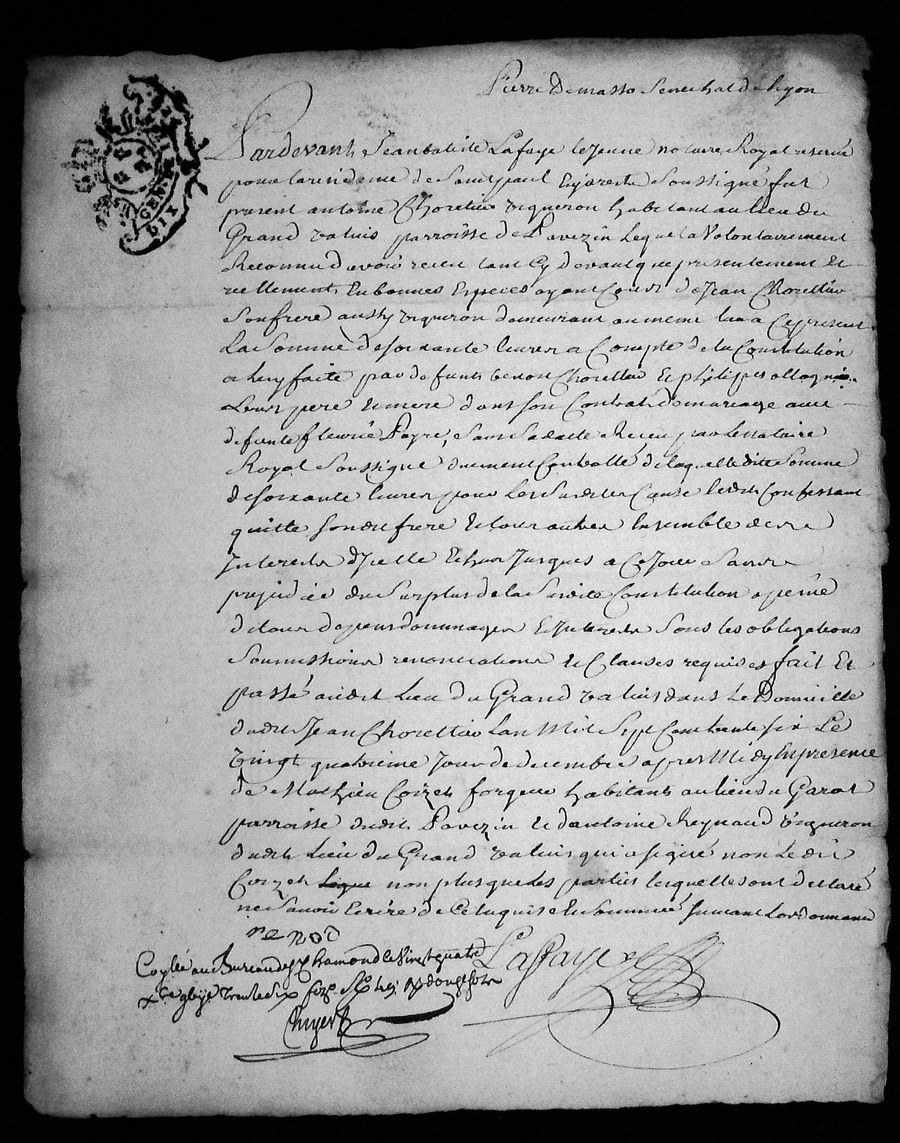 Pierre Demasso Senechal de Lyon
GE DIX
Pardevant Jeanbatiste Lafaye le Jeune notaire Royal reservé
pour la residence de Saint paul Enjarest Soussigné fut
present antoine Chorettier vigneron habitant au lieu du
Grand valuis parroisse de Pavezin Lequel a Volontairement
Reconnu d'avoir receu tant Cy devant que presentement Et
reellement En bonnes Especes ayant Cours de Jean Chorettier
Son frere aussy vigneron demeurant au meme lieu a Ce present
La Somme de soixante livres a Compte de la Constitution
a luy faite par defunts benoit Chorettier Et philippe
Leurs pere Et mere dans son Contrat de mariage avec
defunte fleurie Payre, Sans Sa datte Receu par Le notaire
Royal Soussigné duement Controllé de laquelle ditte Somme
de soixante livres pour Les Susdittes Cause ledit Confessant
quitte Son dit frere Et tour autres Ensemble de
Interests d'Icelle Echus Jusques a Ce Jour Sans
prejudice du Surplus de la Susditte Constitution a peine
de tour depens dommages Et Interests Sous les obligations
Soumissions renonciations Et Clauses requises fait Et
passé audit Lieu du Grand valuis dans Le Domicille
dudit Jean Chorettier Lan Mil Sept Cent trente six Le
vingt quatrieme Jour de decembre apres Midy En presence
de Mathieu Coizet forgeur habitant au lieu du Garat
parroisse dudit Pavezin Et d'antoine Reynaud vigneron
dudit Lieu du Grand valuis qui a signé non Le dit
Coizet non plus que Les parties lesquelles ont declaré
ne Savoir Ecrire de Ce Enquis Et Sommé Suivant Lordonnance
Lafaye
au Bureau de St Chamond le vingt quatre